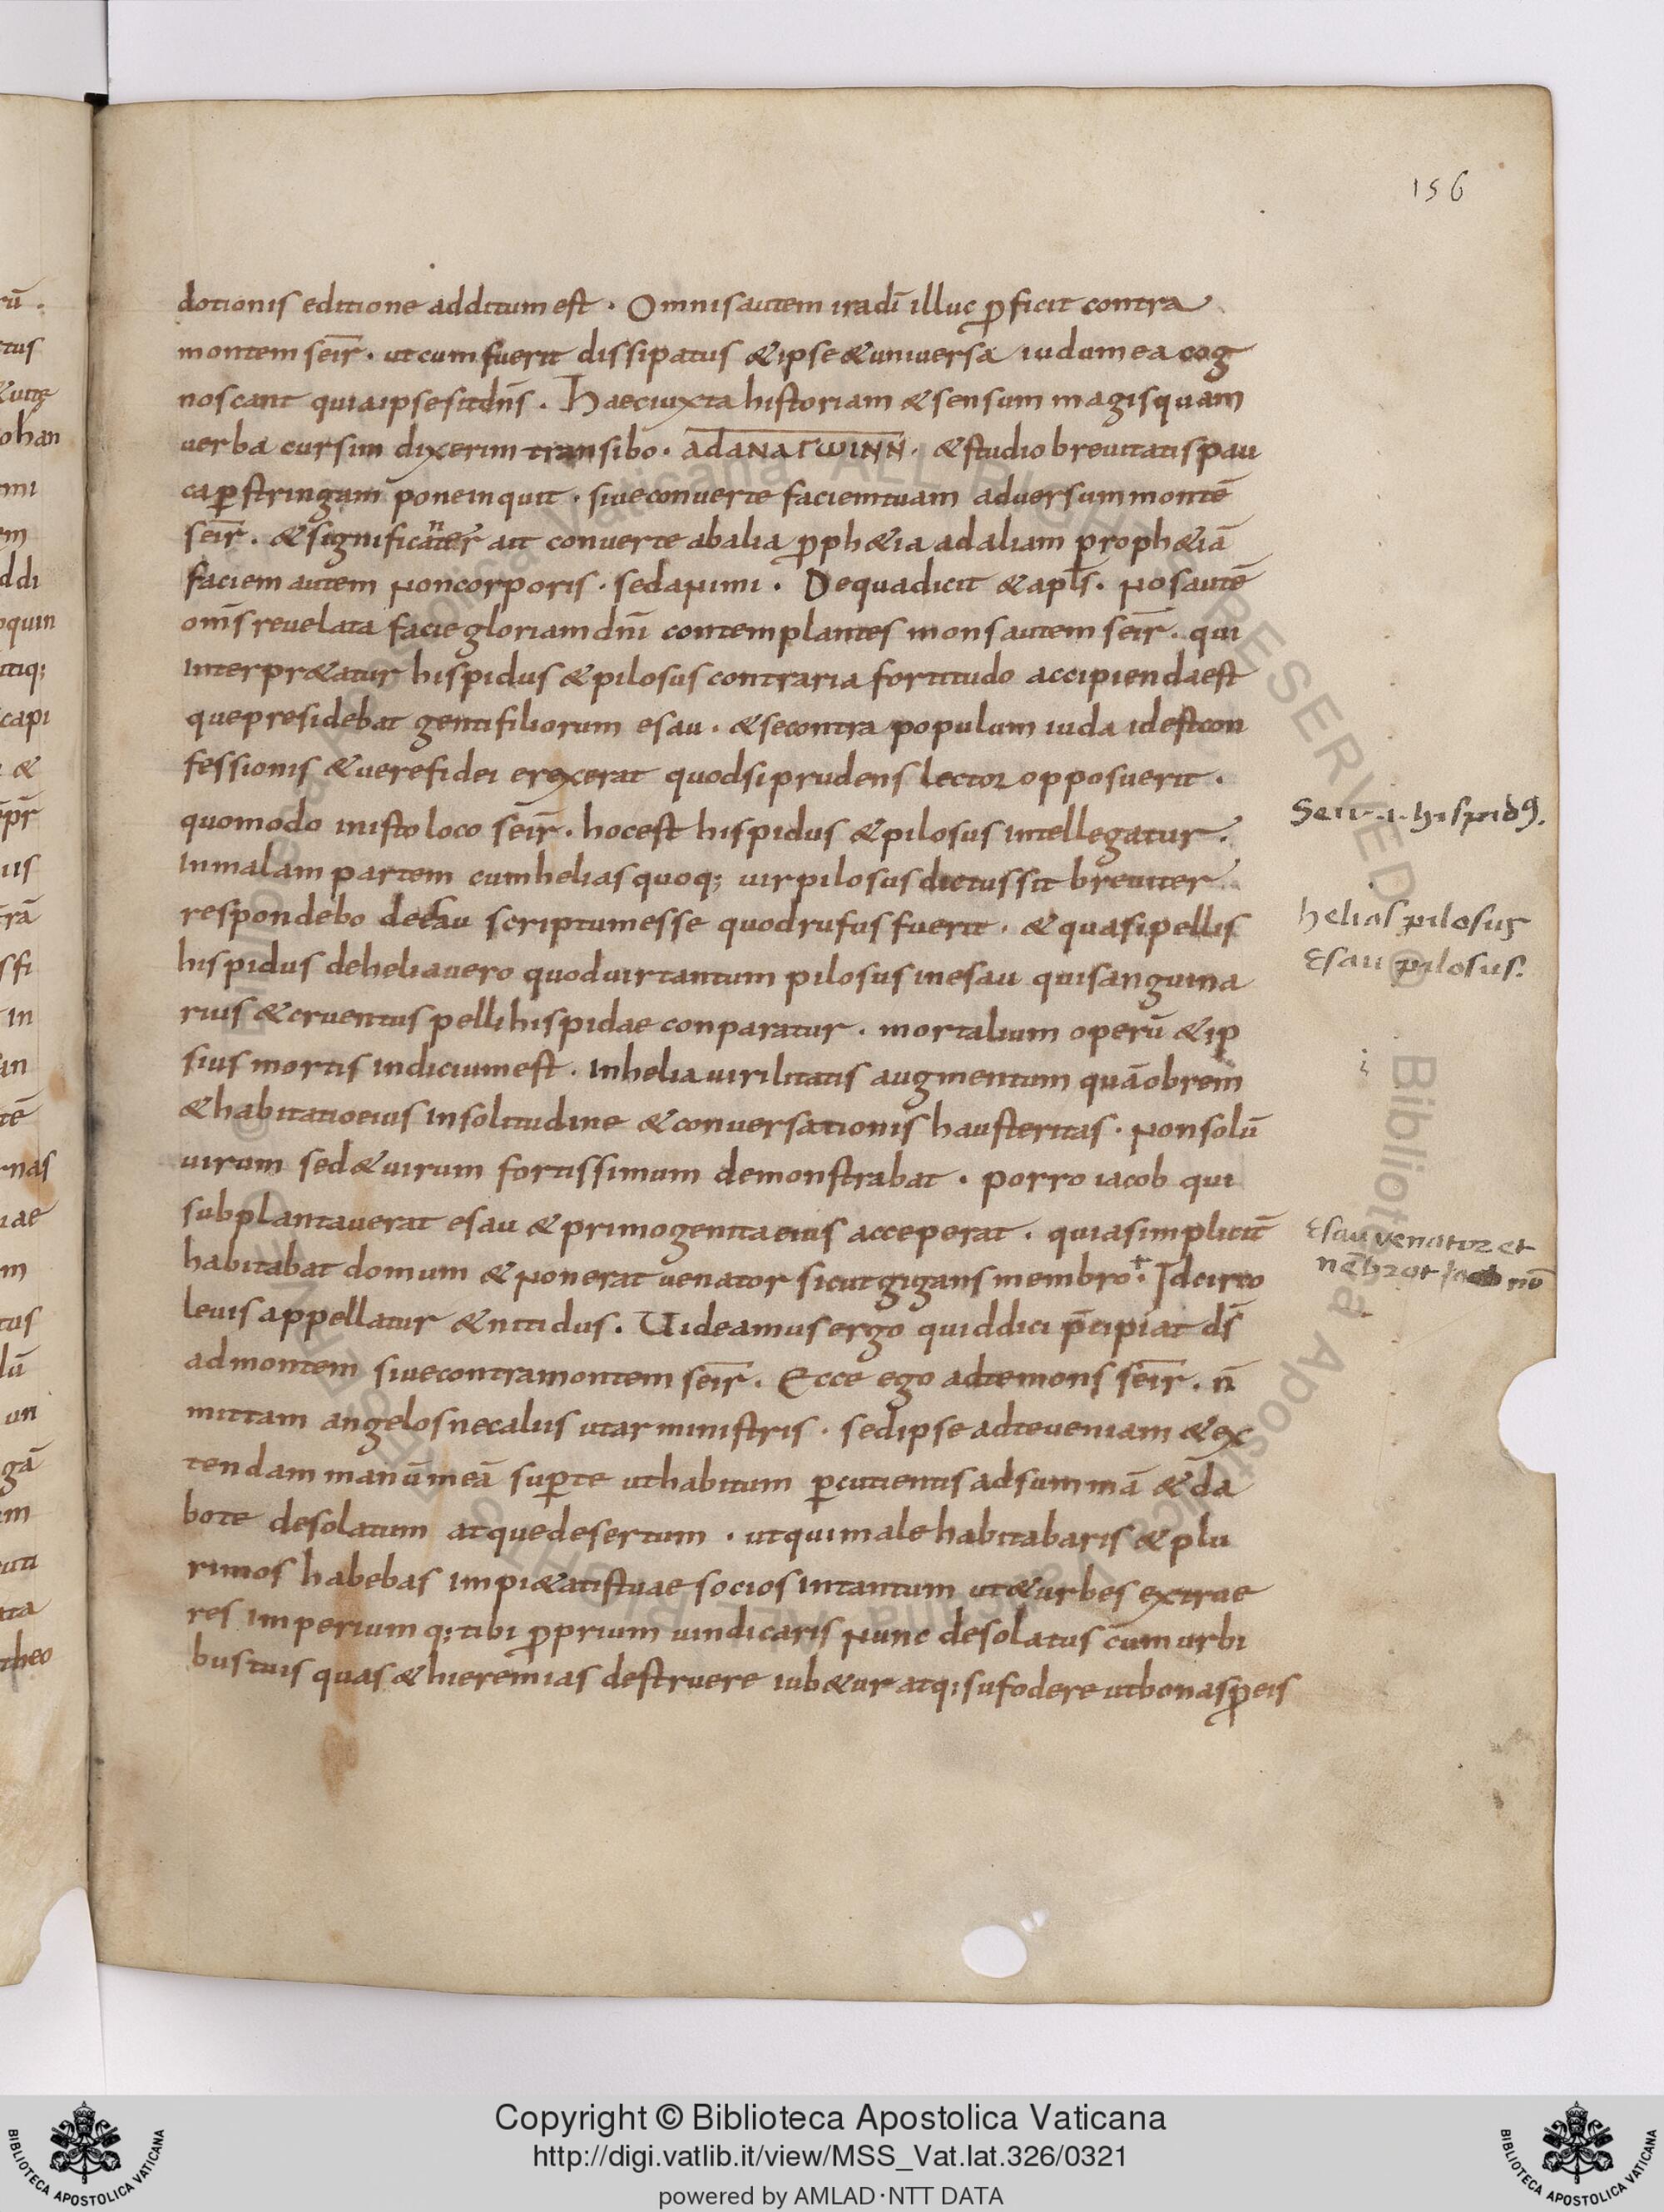 156
dotionis editione additum est · Omnis autem ira dī illuc ꝓficit contra
montem seir̄ · ut cum fuerit dissipatus & ipse & uniuersa iudumea cog
noscant quia ipse sit dn̄s · Haec iuxta historiam & sensum magis quam
uerba cursim dixerim transibo · ADANAΓWINN · & studio breuitatis pau
ca ꝑstringam pone inquit · siue conuerte faciem tuam aduersum montē
seir̄ · & significanter ait conuerte ab alia ꝓph&ia ad aliam proph&iā
faciem autem non corporis · sed animi · De qua dicit & apl̄s · nos autē
om̄s reuelata facie gloriam dn̄i contemplantes mons autem seir̄ · qui
interpr&atur hispidus & pilosus contraria fortitudo accipienda est
que presidebat genti filiorum esau · & se contra populum iuda id est con
fessionis & uere fidei erexerat quod si prudens lector opposuerit ·
quomodo in isto loco seir̄ · hoc est hispidus & pilosus intellegatur ·
Seir · i · hispidꝰ.
in malam partem cum helias quoq; uir pilosus dictus sit breuiter
respondebo de esau scriptum esse quod rufus fuerit · & quasi pellis
helias pilosus
hispidus de helia uero quod uir tantum pilosus in esau qui sanguina
Esau pilosus.
rius & cruentus pelli hispidae conparatur · mortalium operū & ip
sius mortis indicium est · in helia uirilitatis augmentum quāobrem
& habitatio eius in solitudine & conuersationis hausteritas · non solū
uirum sed & uirum fortissimum demonstrabat · porro iacob qui
subplantauerat esau & primogenita eius acceperat · quia simplicit̄
Esau venator et
habitabat domum & non erat uenator sicut gigans membrot · Idcirco
nēbrot Iacob nō
leuis appellatur & nitidus · Uideamus ergo quid dici p̄cipiat ds̄
ad montem siue contra montem seir̄ · Ecce ego ad te mons seir̄ · n̄
mittam angelos nec aliis utar ministris · sed ipse ad te ueniam & ex
tendam manū meā suꝑ te ut habitum ꝑcutientis adsummā & da
bo te desolatum atque desertum · ut qui male habitabaris & plu
rimos habebas impi&atis tuae socios in tantum ut & urbes extrue
res imperiumq; tibi ꝓprium uindicaris nunc desolatus cum urbi
bus tuis quas & hieremias destruere iub&ur atq; sufodere ut bonas ꝓ eis
Copyright © Biblioteca Apostolica Vaticana
http://digi.vatlib.it/view/MSS_Vat.lat.326/0321
powered by AMLAD·NTT DATA
BIBLIOTECA APOSTOLICA VATICANA
BIBLIOTECA APOSTOLICA VATICANA